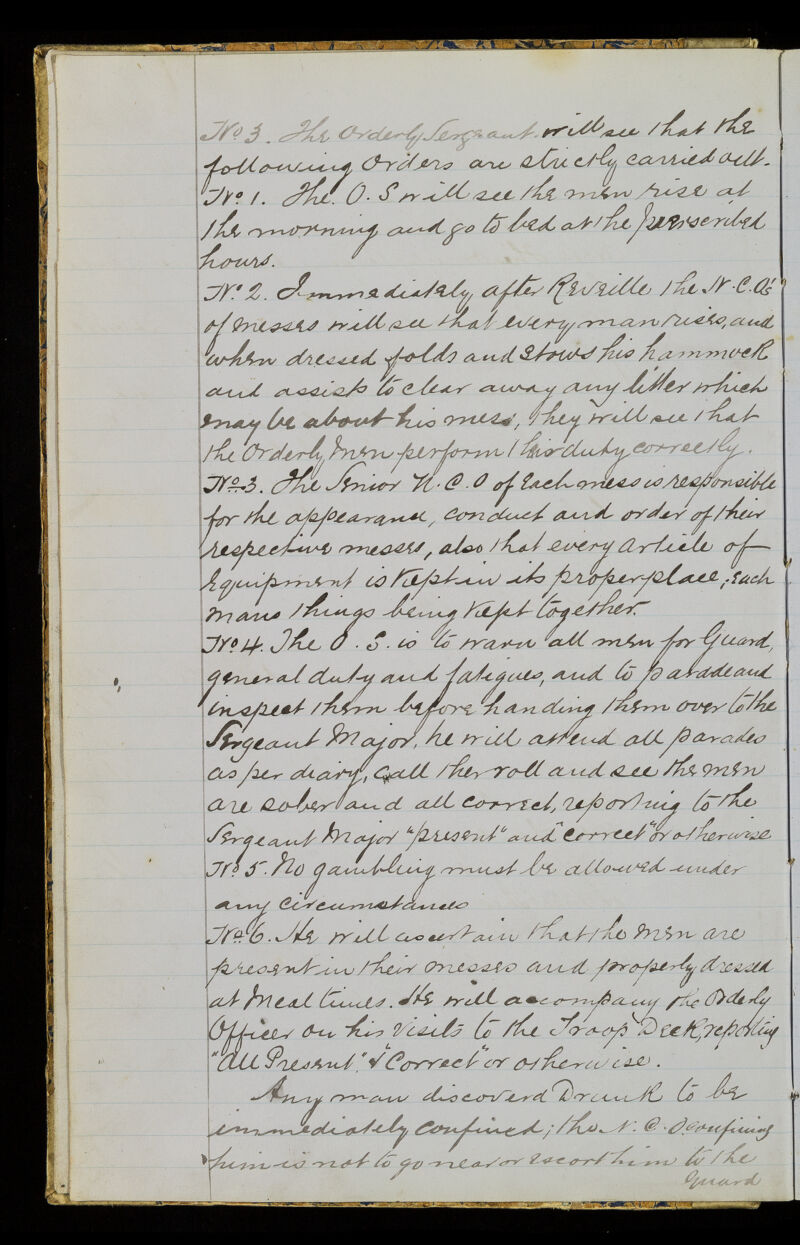 No 3. The Orderly Sergeant will see that the
following Orders are strictly carried out.
No 1. The. O. S will see the men rise at
the morning and go to bed at the perscribed
hours.
No 2. Immediately after Reveille the N.C.O's
of messes will see that every man rises, and
when dressed folds and stows his hammock
and assists to clear away any litter which
may be about his mess, they will see that
the Orderly Men perform their duty correctly.
No 3. The Senior N.C.O of each mess is responsible
for the appearance, conduct and order of their
respective messes, also that every article of
equipment is kept in its proper place; each
mans things being kept together.
No 4. The O. S. is to warn all men for Guard,
general duty and fatigues, and to parade and
inspect them before handing them over to the
Sergeant Major, he will attend all parades
as per diary, call the roll and see the men
are sober and all correct, reporting to the
Sergeant Major "present" and "correct" or otherwise
No 5. No gambling must be allowed under
any circumstances
No 6. He will ascertain that the men are
present in their messes and properly dressed
at Meal times. He will accompany the Orderly
Officer on his visits to the Troop Deck, reporting
"All Present" & "Correct" or otherwise.
Any man discoverd Drunk to be
immediately confined; the N.C.O. confining
him is not to go near or escort him to the
Guard